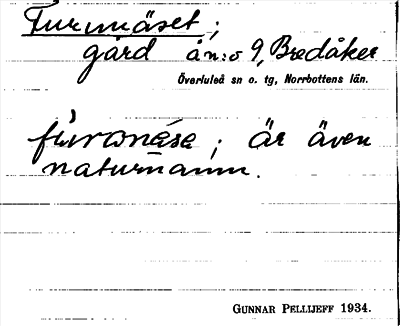 Furunäset;
gård å n:o 9, Bredåker
Överluleå sn o. tg, Norrbottens län.
är även
naturnamn.
GUNNAR PELLIJEFF 1934.